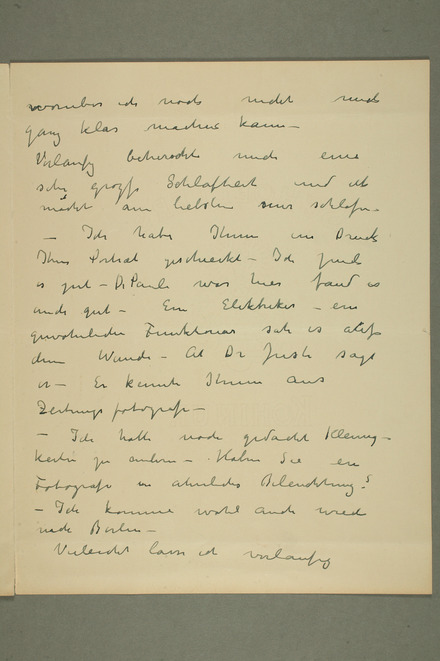 worüber ich noch nicht mich
ganz klar machen kann –
Vorläufig beherrscht mich eine
sehr große Schlafheit und ich
möcht am liebsten nur schlafen –
– Ich habe Ihnen im Druck
Ihr Portrait geschickt – Ich find
es gut – Dr Pauli war hier fand es
nicht gut – Ein Elektriker – ein
gewöhnlicher Funktionär sah es auf
dem Wande – Ah Dr sagt
er – Er kennt Ihnen aus
Zeitungs fotografi –
– Ich hatte noch gedacht Kleinig-
keiten zu ändern – Haben Sie ein
Fotografi in ähnliches Beleuchtung?
– Ich komme wohl auch wied
nach Berlin –
Vielleicht lasse ich vorläufig